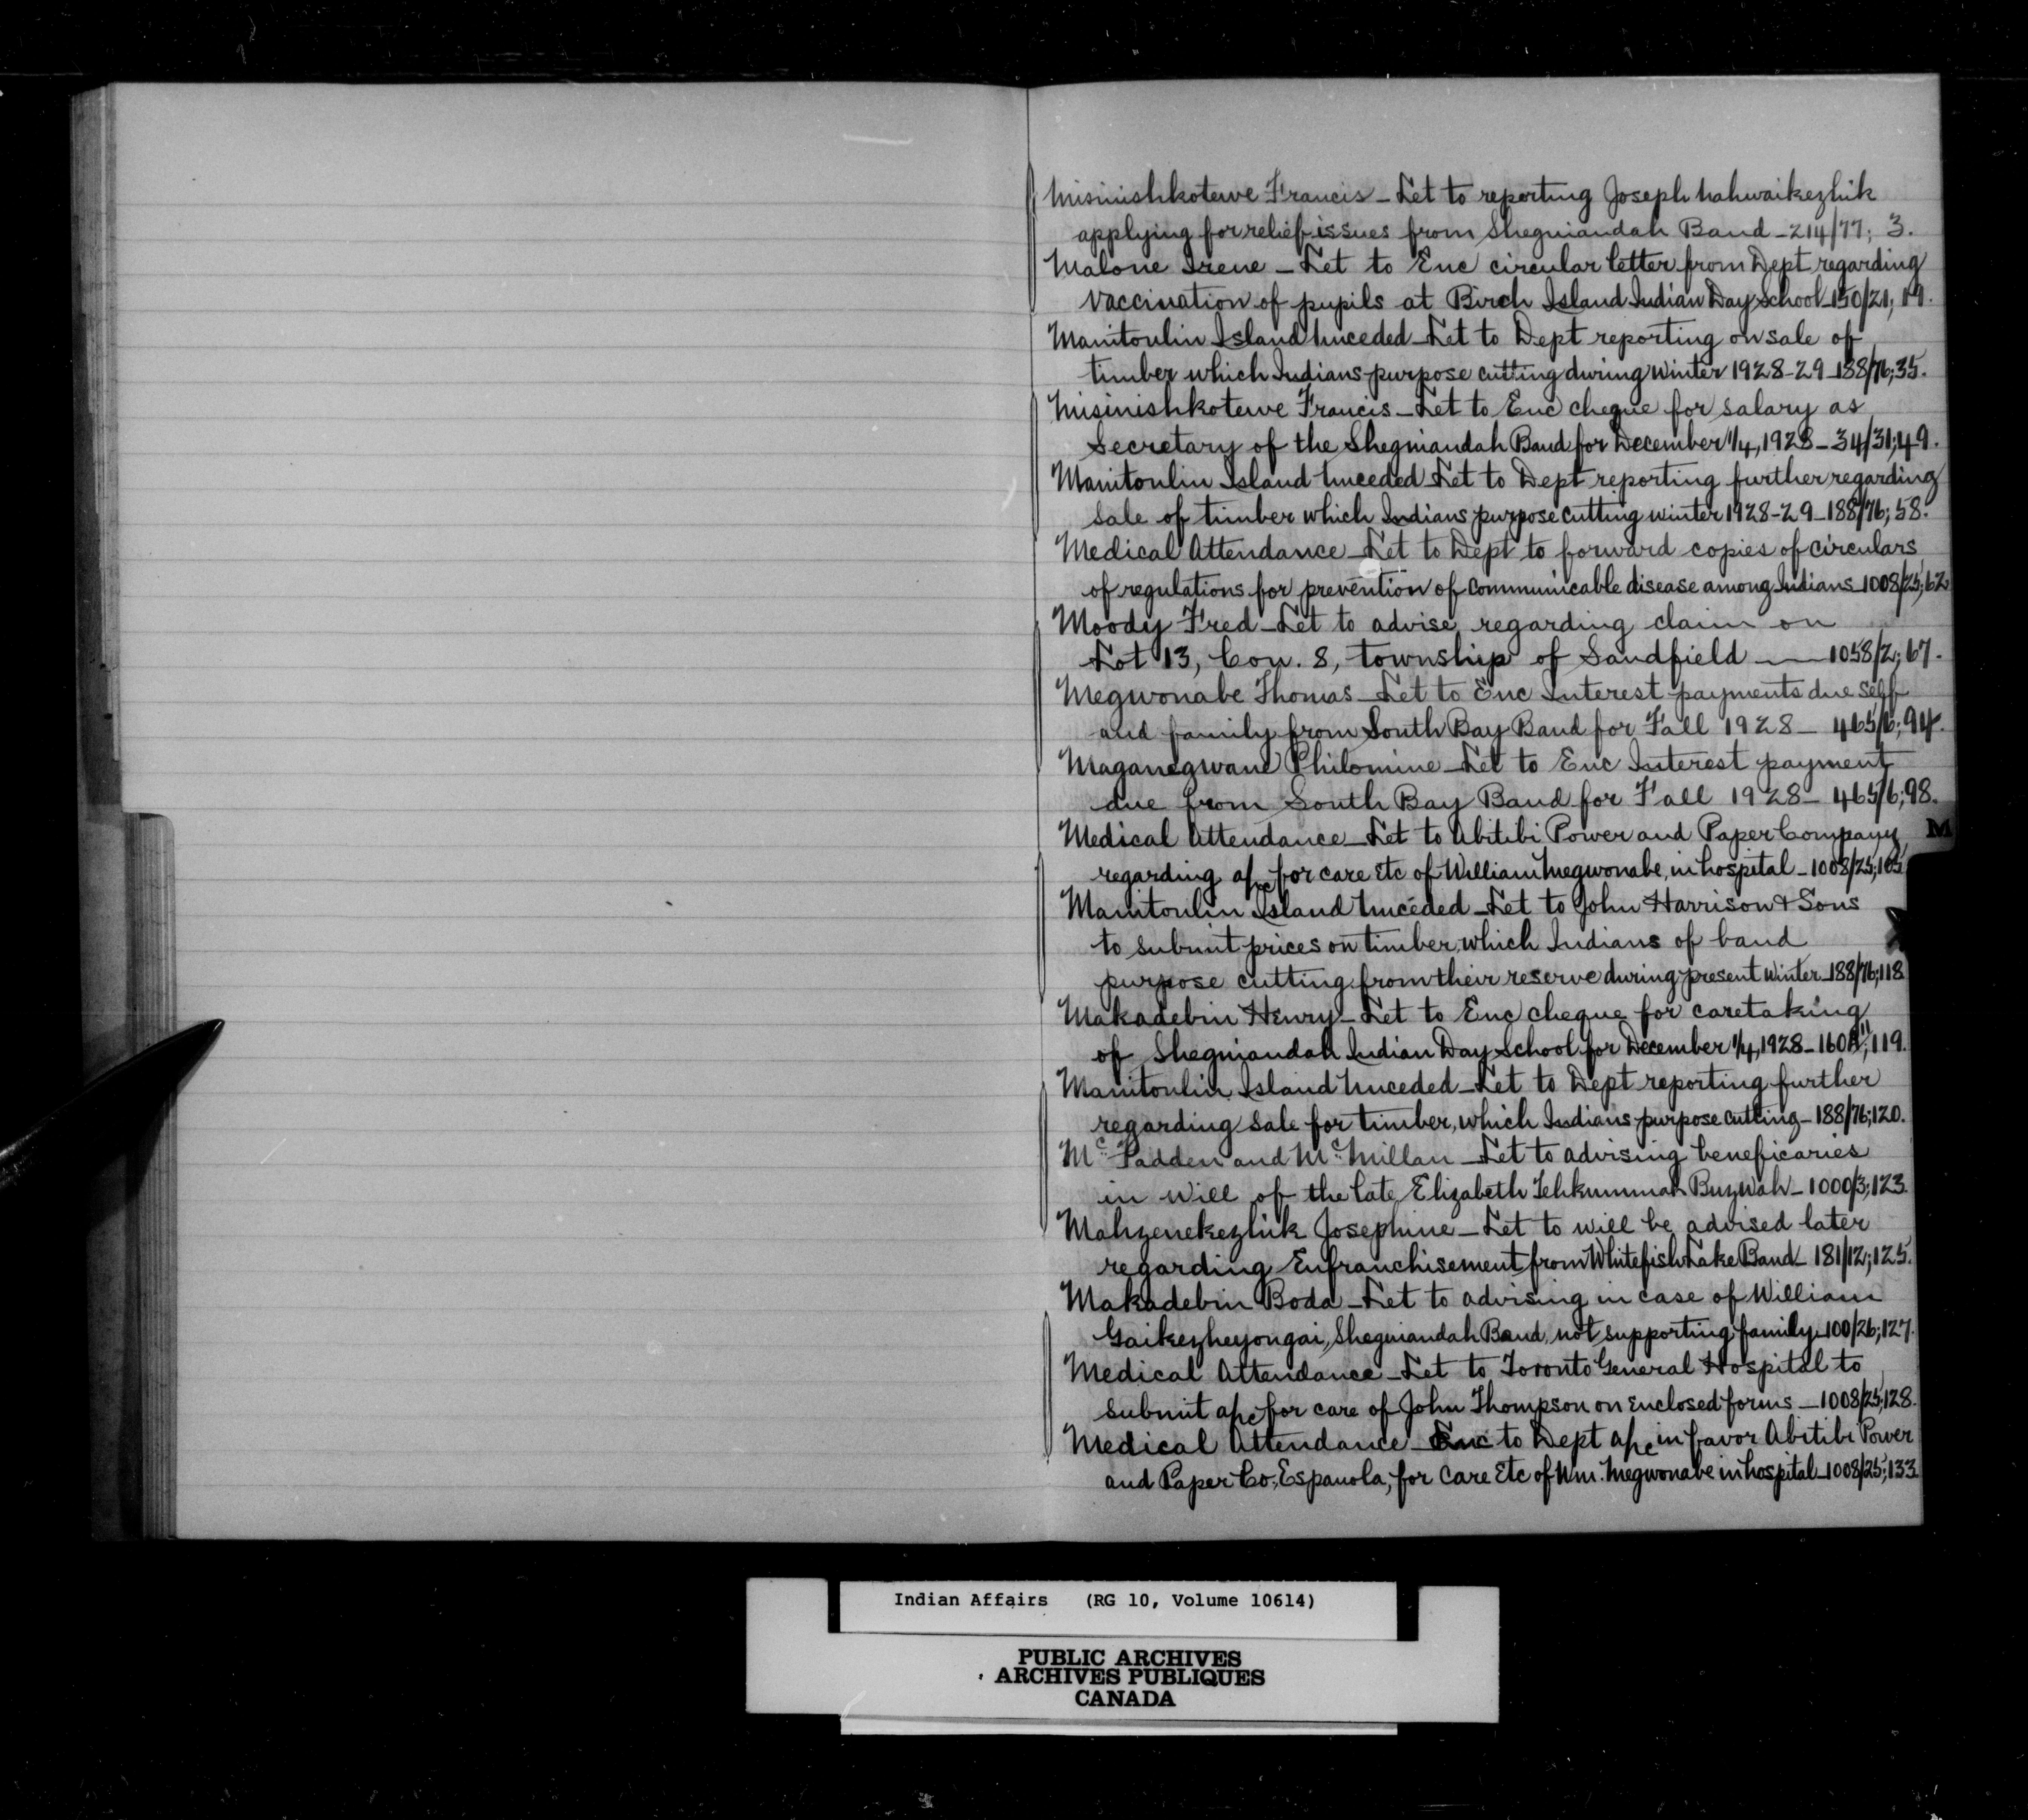 Misinishkotewe Francis – Let to reporting Joseph Nahwaikezhik
applying for relief issues from Sheguiandah Band – 214/77; 3.
Malone Irene – Let to Enc circular letter from Dept regarding
vaccination of pupils at Birch Island Indian Day School – 150/21; 19.
Manitoulin Island Unceded – Let to Dept reporting on sale of
timber which Indians purpose cutting during winter 1928-29 – 188/76; 35.
Misinishkotewe Francis – Let to Enc cheque for salary as
Secretary of the Sheguiandah Band for December 1/4, 1928 – 34/31; 49.
Manitoulin Island Unceded – Let to Dept reporting further regarding
sale of timber which Indians purpose cutting winter 1928-29 – 188/76; 58.
Medical Attendance – Let to Dept to forward copies of circulars
of regulations for prevention of communicable disease among Indians – 1008/25; 62
Moody Fred – Let to advise regarding claim on
Lot 13, Con. 8, township of Sandfield — 1058/2; 67.
Megwonabe Thomas – Let to Enc Interest payments due self
and family from South Bay Band for Fall 1928 – 465/6; 94.
Maganegwane Philomine – Let to Enc Interest payment
due from South Bay Band for Fall 1928 – 465/6; 98.
Medical Attendance – Let to Abitibi Power and Paper Company
M
regarding a/c for care Etc of William Megwonabe, in hospital – 1008/25; 105
Manitoulin Island Unceded – Let to John Harrison & Sons
to submit prices on timber, which Indians of band
purpose cutting from their reserve during present winter – 188/76; 118
Makadebin Henry – Let to Enc cheque for caretaking
of Sheguiandah Indian Day School for December 1/4, 1928 – 160A"; 119.
Manitoulin Island Unceded – Let to Dept reporting further
regarding sale for timber, which Indians purpose cutting – 188/76; 120.
Mc Fadden and Mc Millan – Let to advising beneficaries
in will of the late Elizabeth Tehkummah Buzwah – 1000/3; 123.
Mahzenekezhik Josephine – Let to will be advised later
regarding Enfranchisement from Whitefish Lake Band – 181/12; 125.
Makadebin Boda – Let to advising in case of William
Gaikezheyongai, Sheguiandah Band, not supporting family – 100/26; 127.
Medical Attendance – Let to Toronto General Hospital to
submit a/c for care of John Thompson on enclosed forms – 1008/25; 128.
Medical Attendance – Enc to Dept a/c in favor Abitibi Power
and Paper Co., Espanola, for care Etc of Wm. Megwonabe in hospital – 1008/25; 133
Indian Affairs (RG 10, Volume 10614)
PUBLIC ARCHIVES
ARCHIVES PUBLIQUES
CANADA